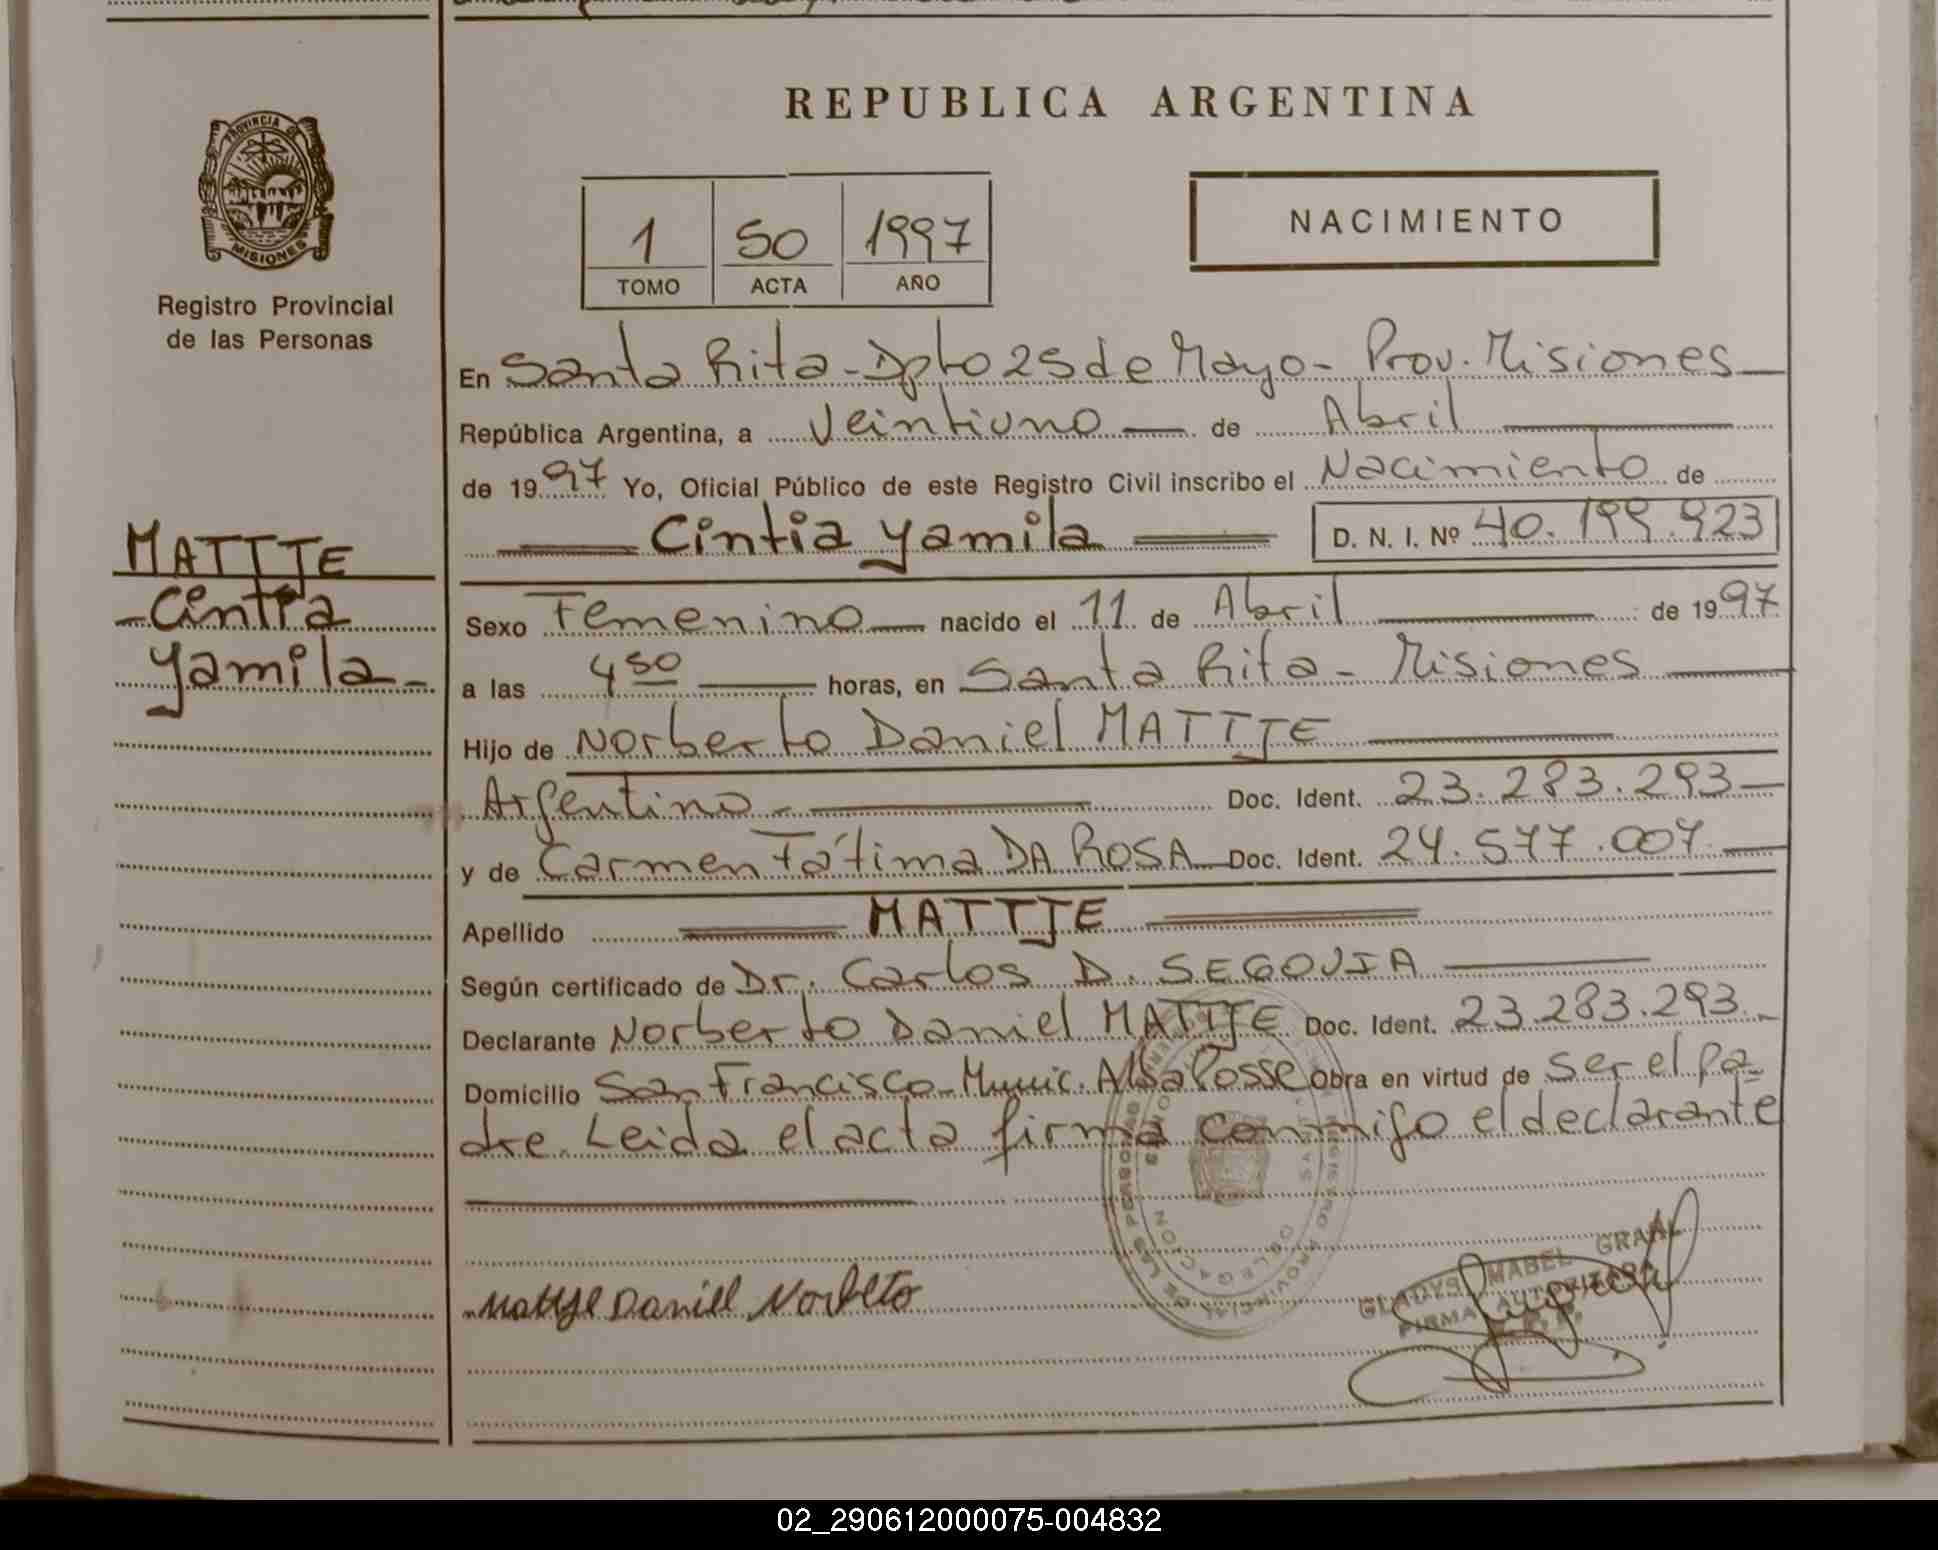 REPUBLICA ARGENTINA
PROVINCIA DE
MISIONES
Registro Provincial
de las Personas
1 50 1997
TOMO ACTA AÑO
NACIMIENTO
En Santa Rita - Dpto 25 de Mayo - Prov. Misiones
República Argentina, a Veintiuno de Abril
de 1997 Yo, Oficial Público de este Registro Civil inscribo el Nacimiento de
Cintia Yamila D. N. I. Nº 40.199.923
MATTJE
Cintia
Yamila
Sexo Femenino nacido el 11 de Abril de 1997
a las 4 50 horas, en Santa Rita - Misiones
Hijo de Norberto Daniel MATTJE
Argentino - Doc. Ident. 23.283.293
y de Carmen Fátima DA ROSA Doc. Ident. 24.577.007
Apellido MATTJE
Según certificado de Dr. Carlos D. SEGOVIA
Declarante Norberto Daniel MATTJE Doc. Ident. 23.283.293
Domicilio San Francisco - Munic. Alba Posse Obra en virtud de ser el pa
dre. Leida el acta firma conmigo el declarante
Mattje Daniel Norberto
GLADYS MABEL GRAAL
FIRMA AUTORIZADA
02_290612000075-004832